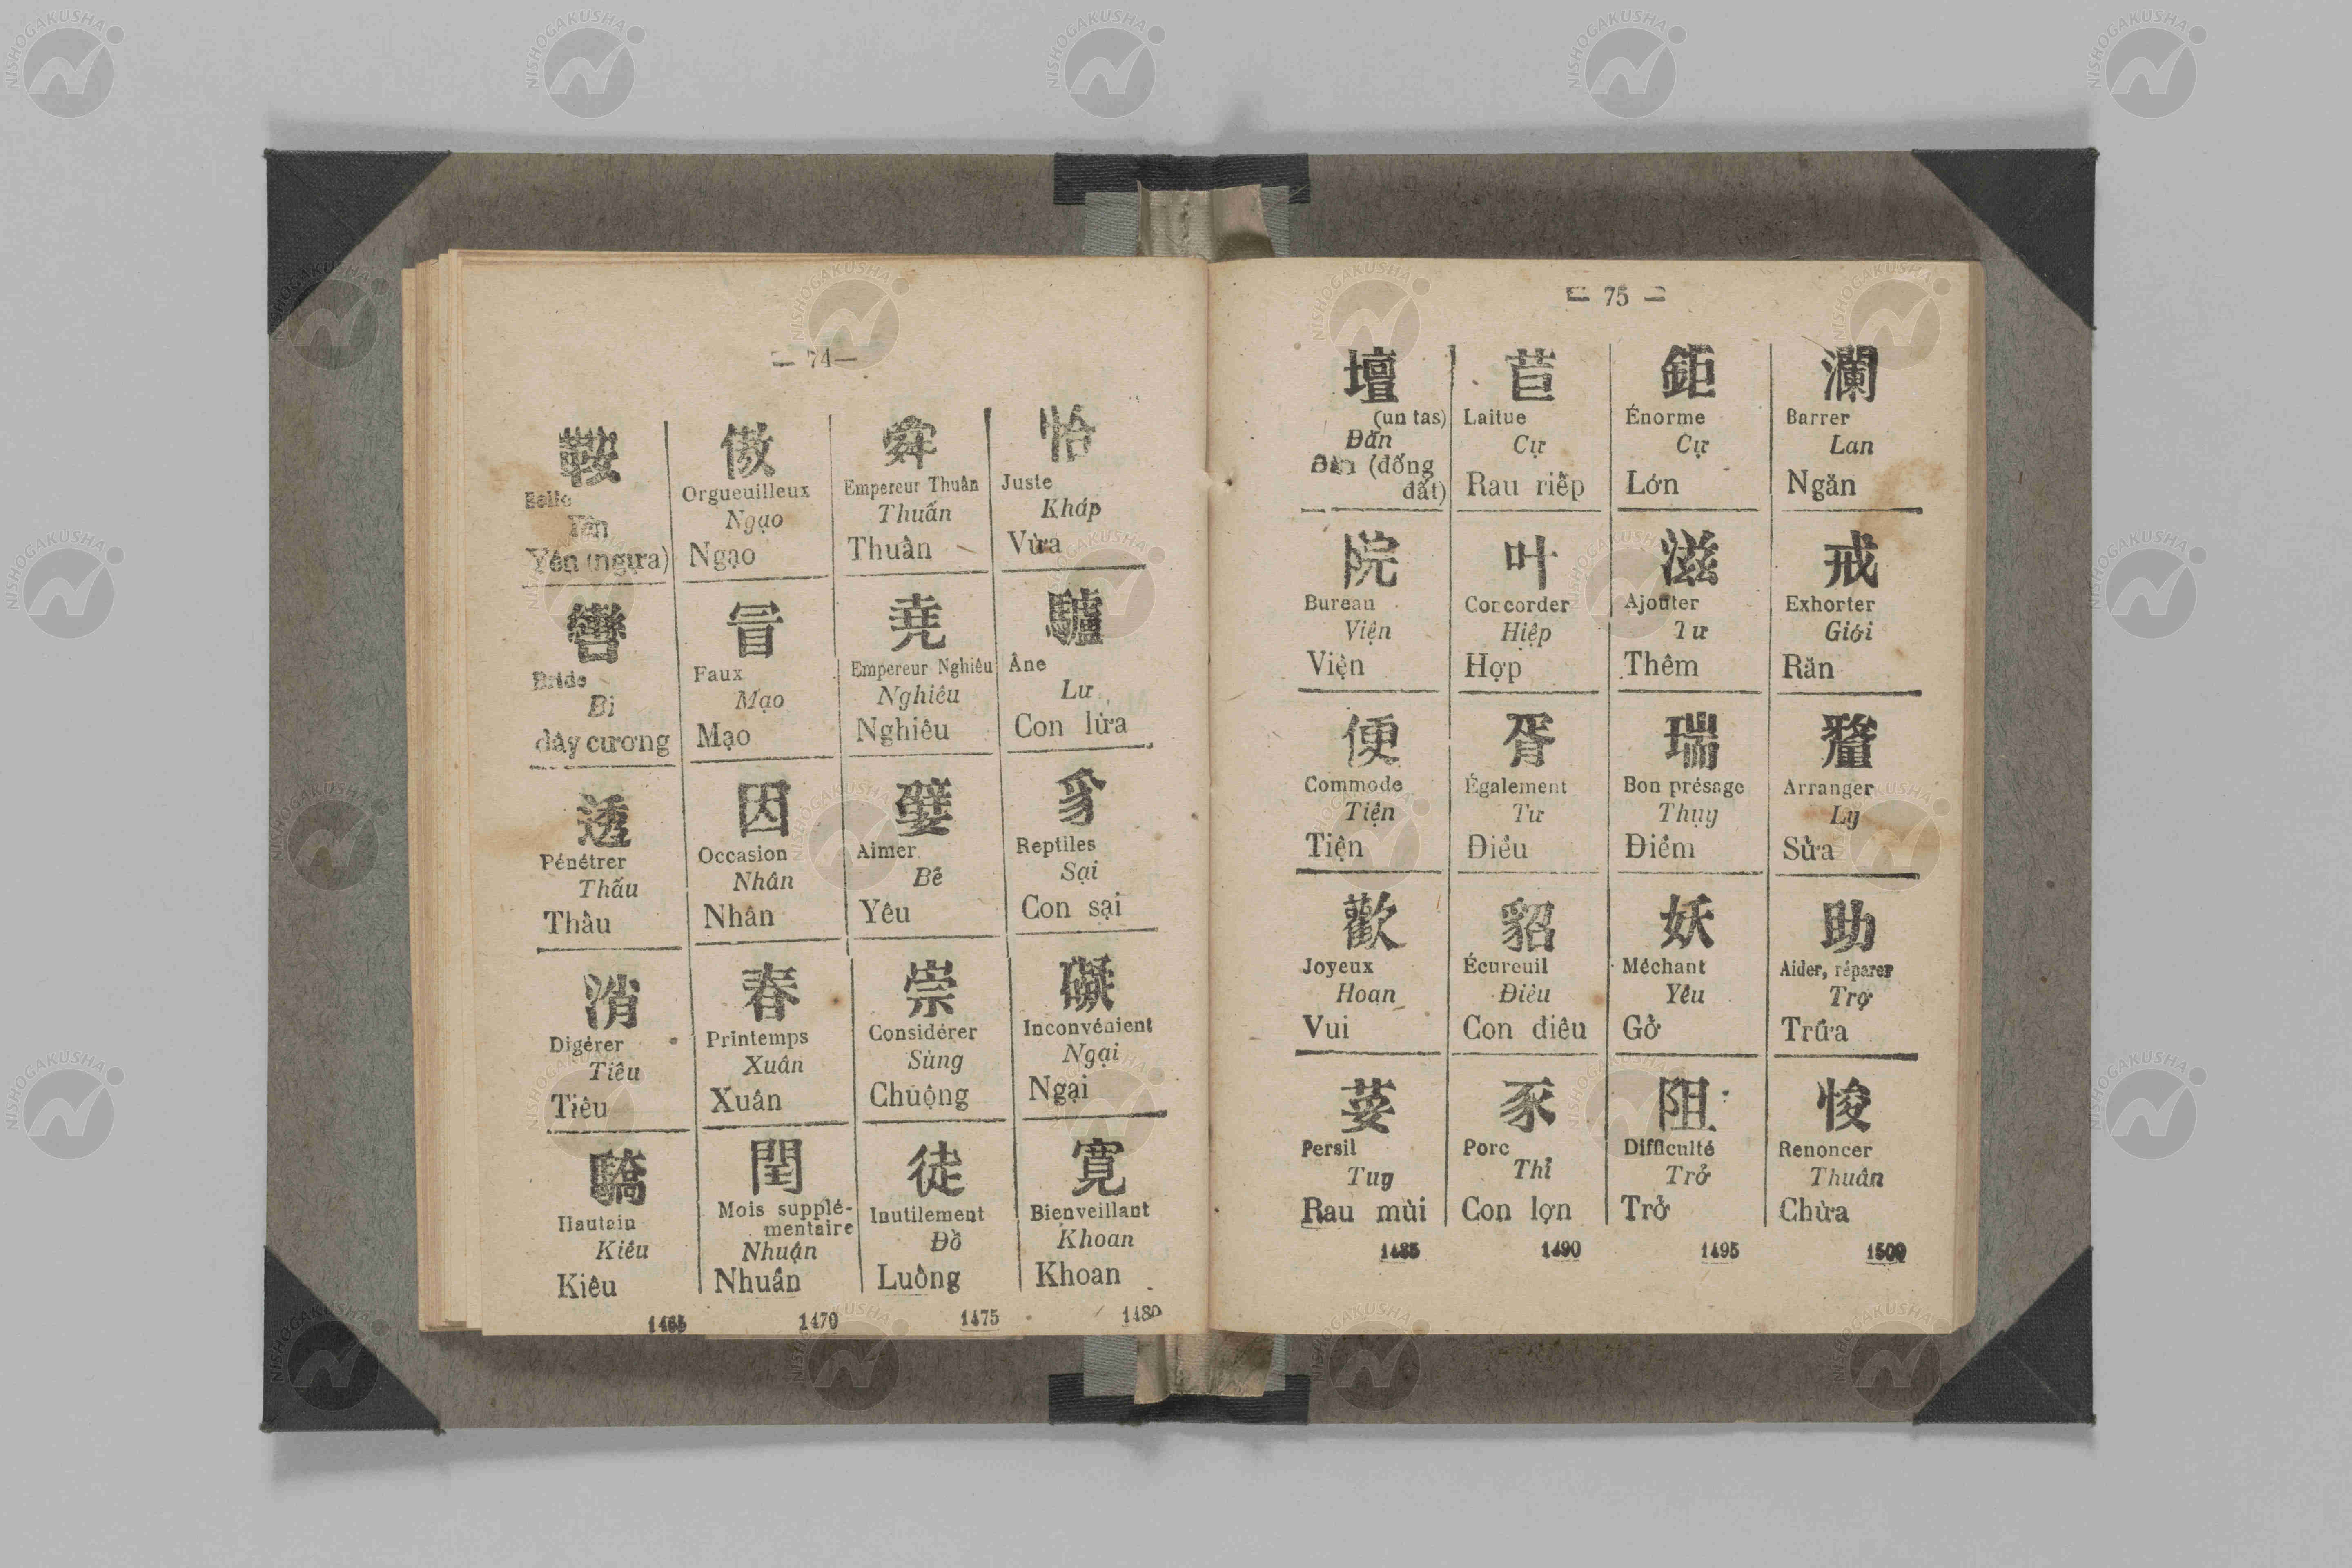 — 74 —
鞍
Selle
Yên
Yên (ngựa)
轡
Bride
Bí
dây cương
透
Pénétrer
Thấu
Thâu
消
Digérer
Tiêu
Tiêu
驕
Hautain
Kiêu
Kiêu
1465
傲
Orgueuilleux
Ngạo
Ngạo
冒
Faux
Mạo
Mạo
因
Occasion
Nhân
Nhân
春
Printemps
Xuân
Xuân
閏
Mois supplé-
mentaire
Nhuận
Nhuân
1470
舜
Empereur Thuân
Thuấn
Thuân
堯
Empereur Nghiêu
Nghiêu
Nghiêu
嬖
Aimer
Bê
Yêu
崇
Considérer
Sùng
Chuộng
徒
Inutilement
Đồ
Luông
1475
恰
Juste
Kháp
Vừa
驢
Âne
Lư
Con lừa
豸
Reptiles
Sại
Con sại
礙
Inconvénient
Ngại
Ngại
寬
Bienveillant
Khoan
Khoan
1480
— 75 —
壇
(un tas)
Đàn
(đống
đất)
院
Bureau
Viện
Viện
便
Commode
Tiện
Tiện
歡
Joyeux
Hoan
Vui
荽
Persil
Tuy
Rau mùi
1485
苣
Laitue
Cự
Rau riếp
叶
Concorder
Hiệp
Hợp
胥
Également
Tư
Điều
貂
Écureuil
Điêu
Con điêu
豕
Porc
Thỉ
Con lợn
1490
鉅
Énorme
Cự
Lớn
滋
Ajouter
Tư
Thêm
瑞
Bon présage
Thụy
Điềm
妖
Méchant
Yêu
Gở
阻
Difficulté
Trở
Trở
1495
瀾
Barrer
Lan
Ngăn
戒
Exhorter
Giới
Răn
釐
Arranger
Ly
Sửa
助
Aider, réparer
Trợ
Trữa
悛
Renoncer
Thuân
Chừa
1500